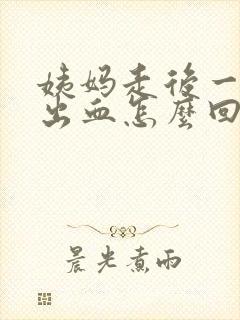 姨妈走后一
出血怎麼回
晨光煮雨